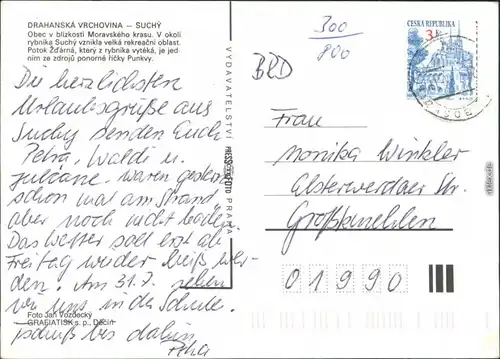 DRAHANSKÁ VRCHOVINA – SUCHÝ
Obec v blízkosti Moravského krasu. V okolí
rybníka Suchý vznikla velká rekreační oblast.
Potok Žďárná, který z rybníka vytéká, je jed-
ním ze zdrojů ponorné říčky Punkvy.
Die herzlichsten
Urlaubsgrüße aus
Suchy senden Euch
Petra, Waldi u.
Juliane. Waren gestern
schon mal am Strand,
aber noch nicht baden.
Das Wetter soll erst ab
Freitag wieder heiß wer-
den. Am 31.7. sehen
wir uns in der Schule.
Tschüß bis dahin
Petra
Foto Jan Vozdecký
GRAFIATISK s. p., Děčín
VYDAVATELSTVÍ PRESSFOTO PRAHA
300
800
BRD
ČESKÁ REPUBLIKA
3
Frau
Monika Winkler
Elsterwerdaer Str.
Großkmehlen
01990